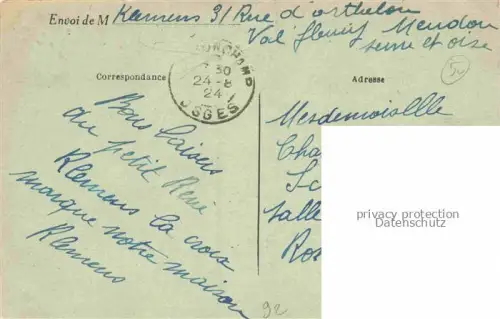 Envoi de M Klemens 31 Rue d'orthelon
Val fleury Meudon
seine et oise
Correspondance
7 30
24-8
24
OSGES
Adresse
Bons baisers
au petit René
Klemens la croix
marque notre maison
Klemens
Mesdemoiselle
Cha
Sc
salle
Ros
privacy protection
Datenschutz
92